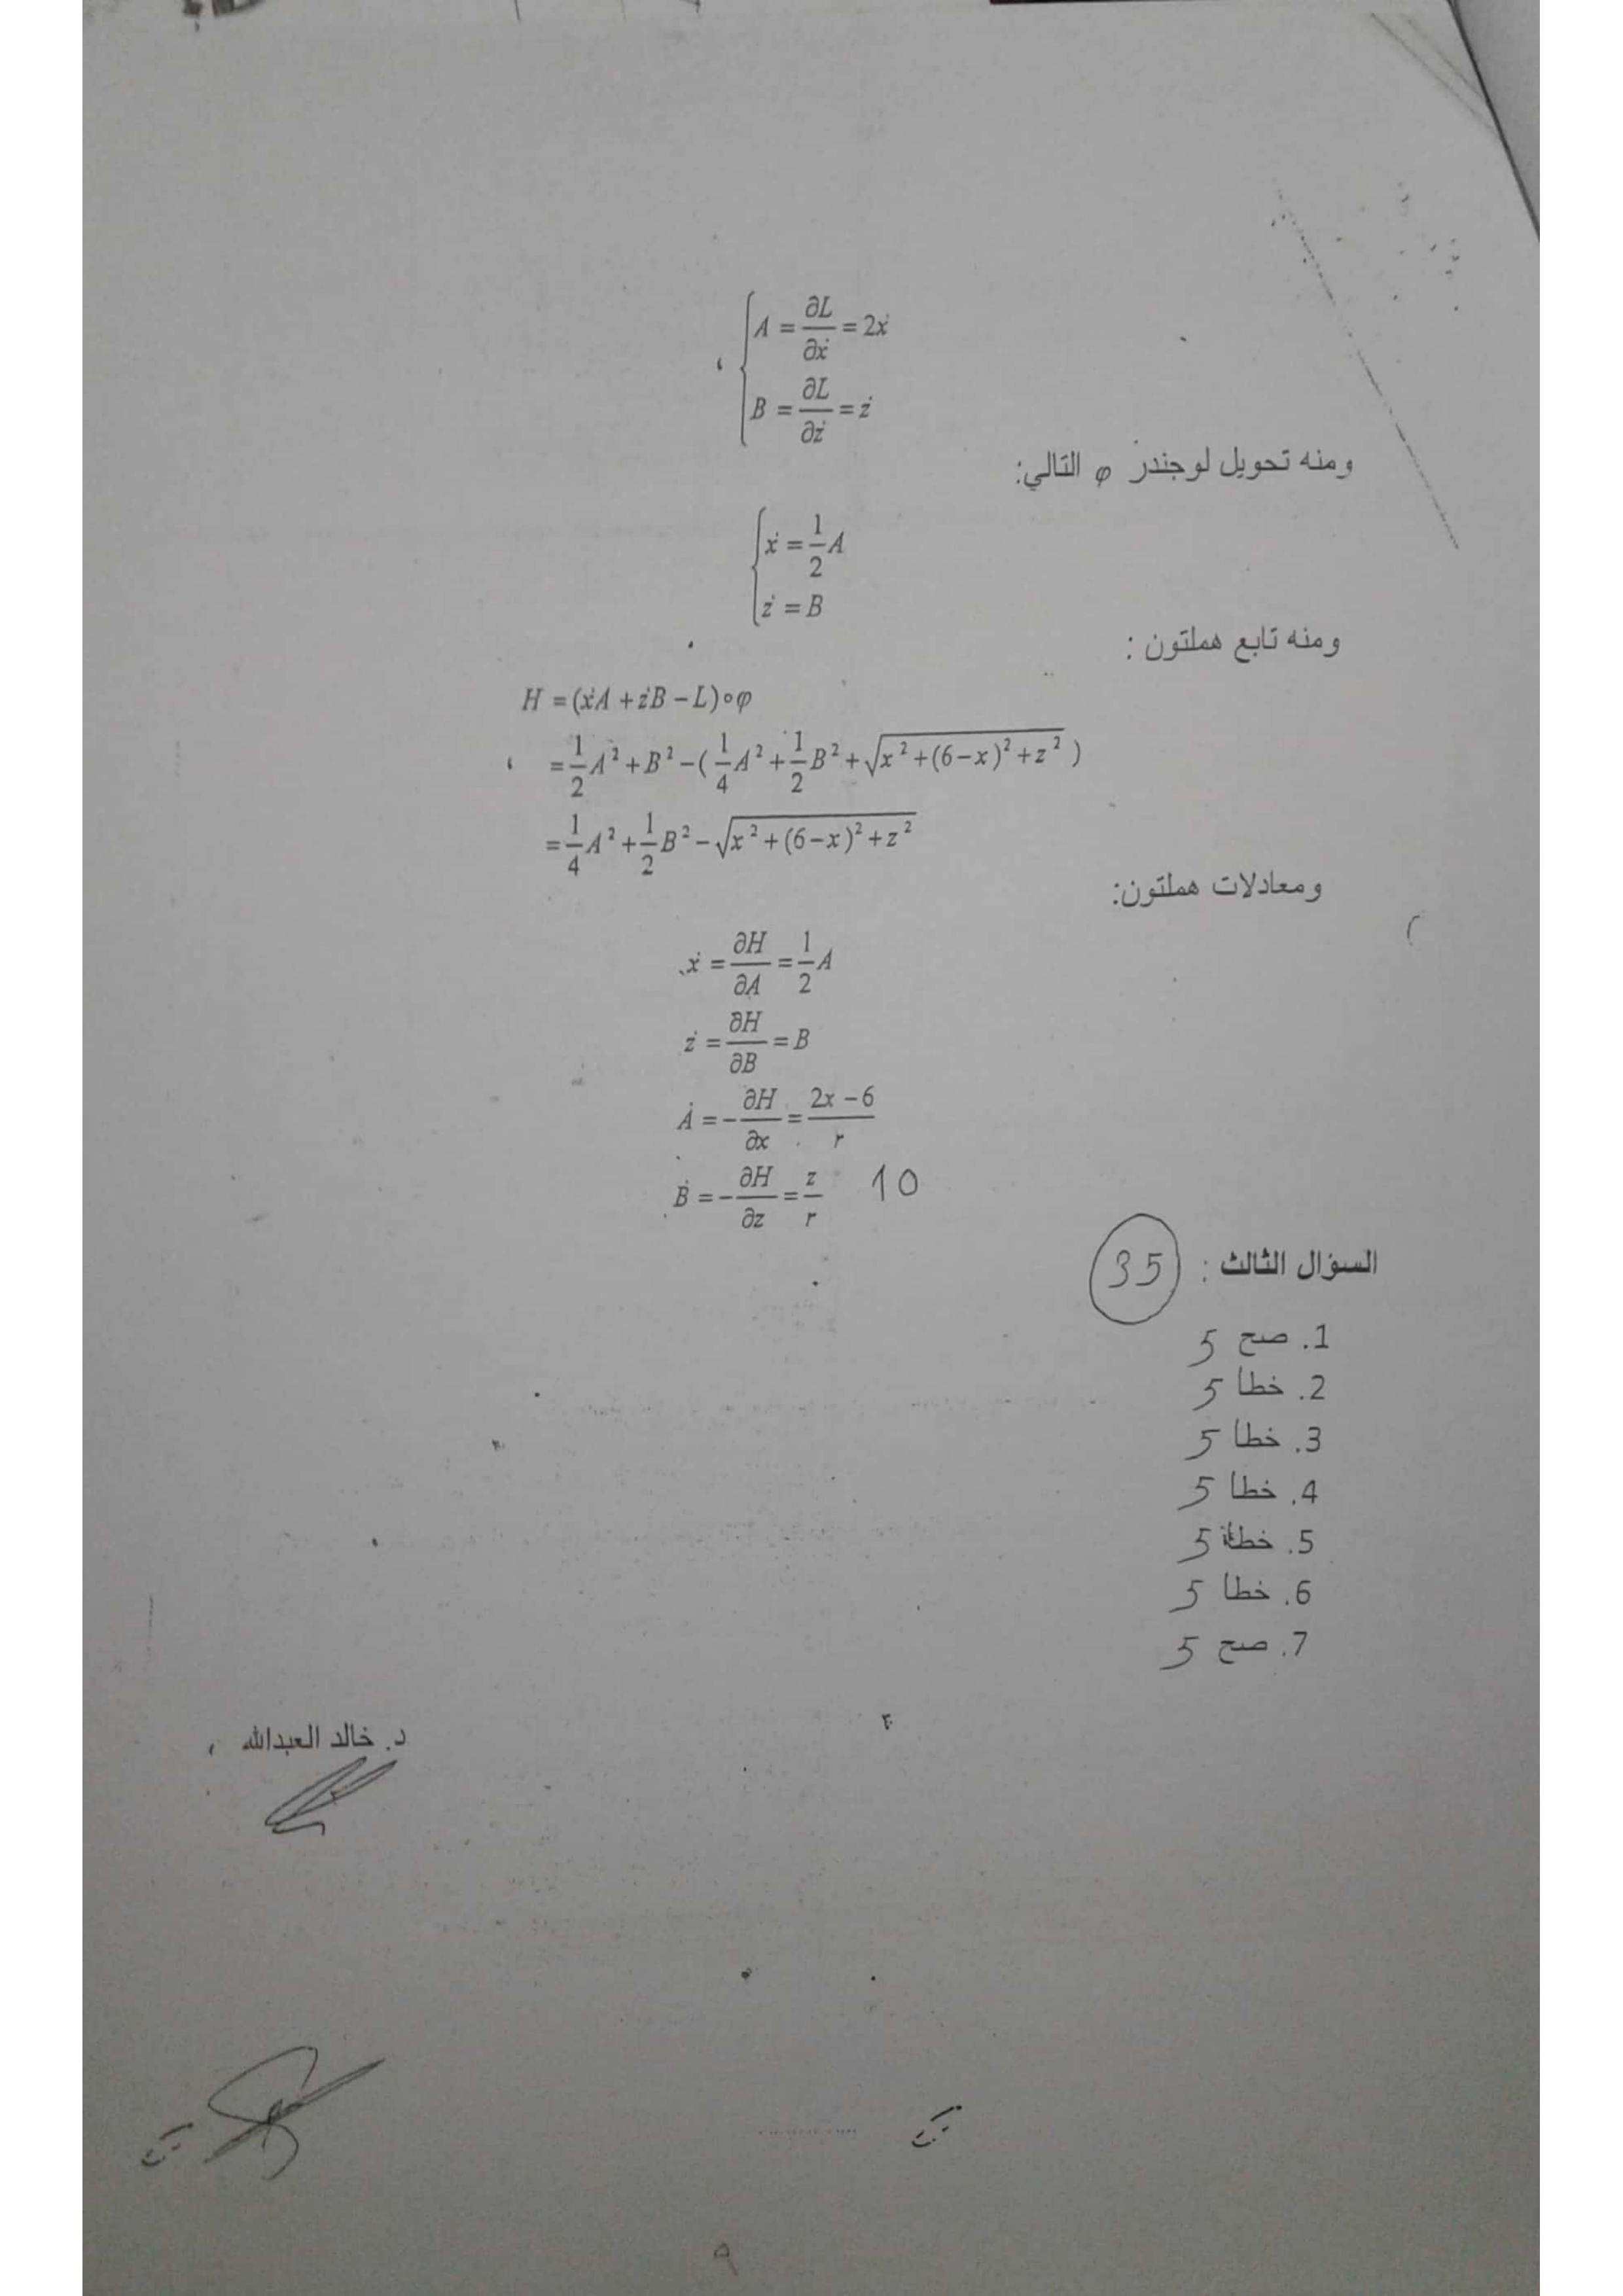 A = ∂L/∂ẋ = 2ẋ
B = ∂L/∂ż = ż
ومنه تحويل لوجندر φ التالي:
ẋ = 1/2 A
ż = B
ومنه تابع هملتون :
H = (ẋA + żB − L)∘φ
= 1/2 A² + B² − ( 1/4 A² + 1/2 B² + √(x² + (6 − x)² + z²) )
= 1/4 A² + 1/2 B² − √(x² + (6 − x)² + z²)
ومعادلات هملتون:
ẋ = ∂H/∂A = 1/2 A
ż = ∂H/∂B = B
Ȧ = − ∂H/∂x = (2x − 6)/r
Ḃ = − ∂H/∂z = z/r 10
السؤال الثالث : 35
1. صح 5
2. خطا 5
3. خطا 5
4. خطا 5
5. خطا 5
6. خطا 5
7. صح 5
د. خالد العبدالله